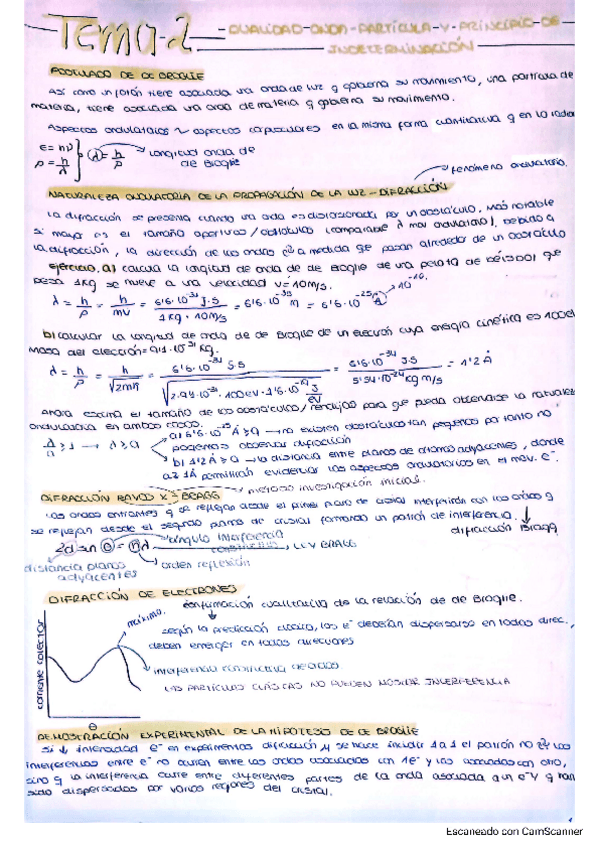 TEMA-2 -DUALIDAD-ONDA-PARTÍCULA-Y-PRINCIPIO-DE
INDETERMINACIÓN
POSTULADO DE DE BROGLIE
Así como un fotón tiene asociada una onda de luz q gobierna su movimiento, una partícula de
materia, tiene asociada una onda de materia q gobierna su movimiento.
Aspectos ondulatorios ~ aspectos corpusculares en la misma forma cuantitativa q en la
E = hν
p = h/λ } λ = h/p → longitud onda de
de Broglie
→ fenómeno ondulatorio.
NATURALEZA ONDULATORIA DE LA PROPAGACIÓN DE LA LUZ - DIFRACCIÓN
La difracción se presenta cuando una onda es distorsionada por un obstáculo, más notable
si mayor es el tamaño aperturas/obstáculos (comparable λ mov ondulatorio), debido a
la difracción, la dirección de las ondas a medida que pasan alrededor de un obstáculo
ejercicio. a) calcula la longitud de onda de de Broglie de una pelota de béisbol que
pesa 1kg se mueve a una velocidad v=10m/s.
λ = h/p = h/mv = 6'6·10⁻³⁴ J·s / 1kg·10m/s = 6'6·10⁻³⁵ m = 6'6·10⁻²⁵ Å → 10⁻¹⁰
b) calcular la longitud de onda de de Broglie de un electrón cuya energía cinética es 100eV
Masa del electrón = 9'1·10⁻³¹ kg.
λ = h/p = h/√2mE = 6'6·10⁻³⁴ J·s / √2·9'1·10⁻³¹·100eV·1'6·10⁻¹⁹ J/eV = 6'6·10⁻³⁴ J·s / 5'4·10⁻²⁴ kg m/s = 1'2 Å
Ahora estima el tamaño de los obstáculos/rendijas para que pueda observarse la naturaleza
ondulatoria en ambos casos.
λ/a ≥ 1 → λ ≥ a → a) 6'6·10⁻²⁵ Å ≥ a → no existen obstáculos tan pequeños por tanto no
podemos observar difracción
b) 1'2 Å ≥ a → la distancia entre planos de átomos adyacentes, donde
a ≥ 1Å permitirán evidenciar los aspectos ondulatorios en el mov. e⁻.
→ método investigación inicial.
DIFRACCIÓN RAYOS X - BRAGG
Las ondas entrantes q se reflejan desde el primer plano de cristal interfieren con las ondas q
se reflejan desde el segundo plano de cristal formando un patrón de interferencia.
difracción Bragg
2d sin θ = nλ → ángulo interferencia
constructiva, LEY BRAGG
distancia planos
adyacentes
→ orden reflexión
DIFRACCIÓN DE ELECTRONES
confirmación cualitativa de la relación de de Broglie.
máximo.
según la predicción clásica, los e⁻ deberían dispersarse en todas direc.,
deben emerger en todas direcciones
interferencia constructiva de ondas
LAS PARTÍCULAS CLÁSICAS NO PUEDEN MOSTRAR INTERFERENCIA
corriente colector
θ
DEMOSTRACIÓN EXPERIMENTAL DE LA HIPÓTESIS DE DE BROGLIE
Si ↓ intensidad e⁻ en experimentos difracción y se hace incidir 1 a 1 el patrón no las
interferencias entre e⁻ no ocurren entre las ondas asociadas con 1e⁻ y las asociadas con otro,
sino q la interferencia ocurre entre diferentes partes de la onda asociada a un e⁻ y han
sido dispersadas por varias regiones del cristal.
1
Escaneado con CamScanner